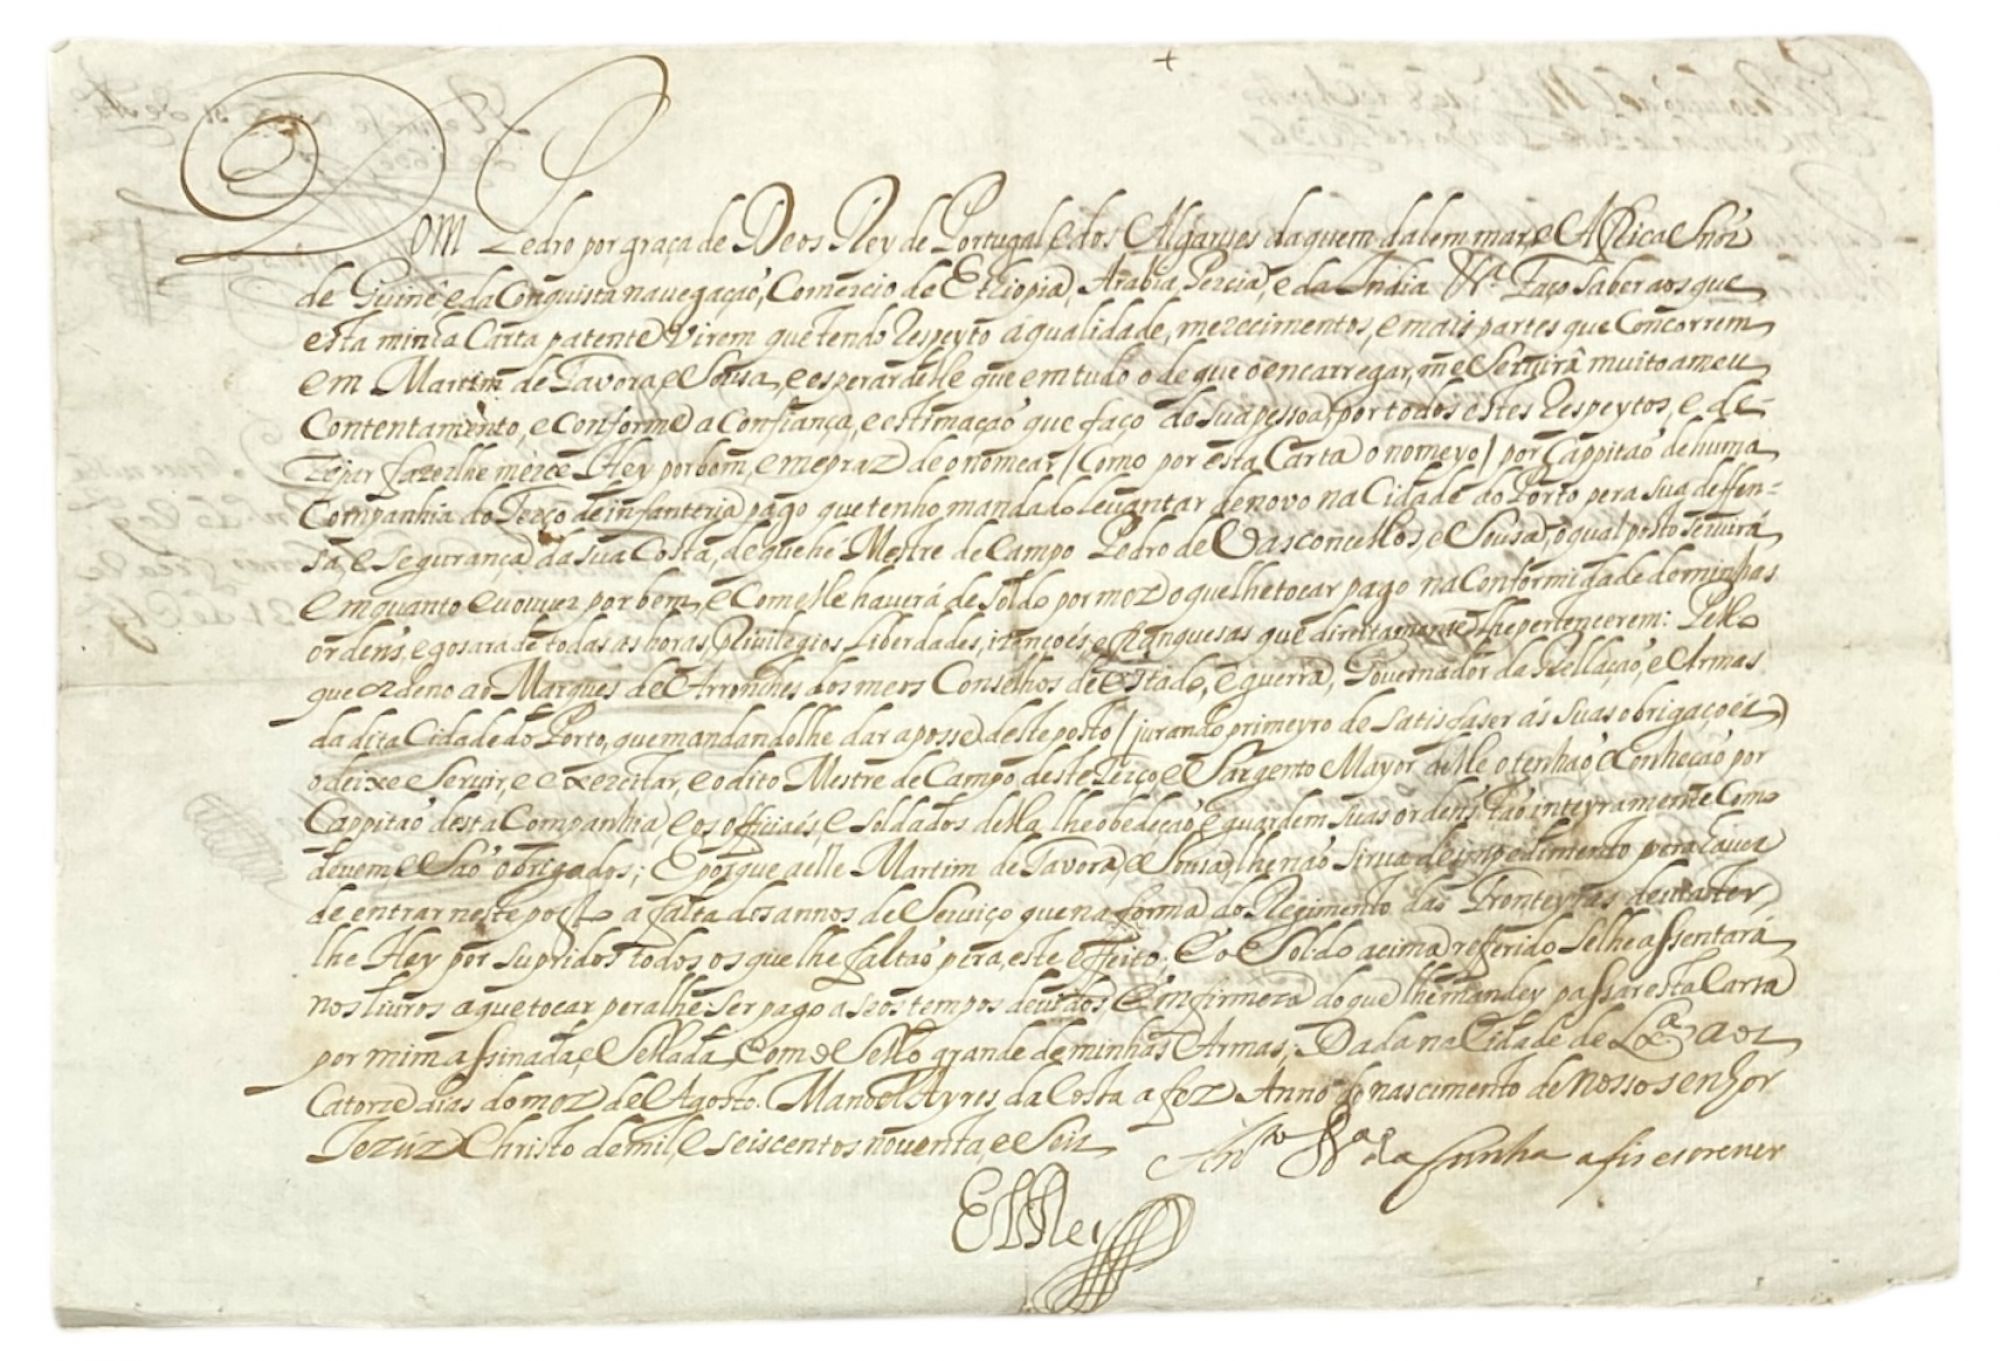 Dom Pedro por graça de Deos Rey de Portugal, e dos Algarves daquem, dalem mar, e Affrica Snõr
de Guine e da Conquista navegação, Comercio de Ethiopia, Arabia, Percia, e da India &ª. Faço saber aos que
esta minha Carta patente virem que tendo Respeyto á qualidade, merecimentos, e mais partes que concorrem
em Martim de Tavora e Sousa, e esperar delle que em tudo o de que o encarregar, me servirá muito a meu
Contentamento, e conforme a confiança, e estimação que faço de sua pessoa, por todos estes Respeytos, e de-
zejar fazerlhe merce Hey por bem, e me praz de o nomear / como por esta Carta o nomeyo / por Cappitão de huma
Companhia do Terço de infanteria pago que tenho mandado levantar de novo na Cidade do Porto pera sua deffen-
sa, e segurança da sua Costa, de que hé Mestre de Campo Pedro de Vasconcellos, e Sousa, o qual posto servirá
emquanto eu ouver por bem, e com elle haverá de soldo por mez o que lhe tocar pago na conformidade de minhas
ordens, e gosará de todas as honras, Privilegios, Liberdades, izenções, e franquesas que direitamente lhe pertencerem: Pello
que ordeno ao Marques de Arronches dos meus Conselhos de Estado, e guerra, Governador da Rellação, e Armas
da dita Cidade do Porto, que mandandolhe dar a posse deste posto / jurando primeyro de satisfaser ás suas obrigações /
o deixe servir, e exercitar, e o dito Mestre de Campo deste Terço e Sargento Mayor delle o tenhão e conheção por
Cappitão desta Companhia, e os officiaes, e soldados della lhe obedeção, e guardem suas ordens tão inteyramente como
devem, e são obrigados; E porque a elle Martim de Tavora, e Sousa, lhe não sirva de impedimento pera haver
de entrar neste posto a falta dos annos de serviço que na forma do Regimento das Fronteyras devia ter,
lhe Hey por supridos todos os que lhe faltão pera este effeito; E o soldo acima referido se lhe assentará
nos livros a que tocar pera lhe ser pago a seos tempos devidos E em firmeza do que lhe mandey passar esta Carta
por mim assinada, e sellada com o sello grande de minhas Armas; Dada na Cidade de Lxª aos
Catorze dias do mez de Agosto. Manoel Ayres da Costa a fez Anno do nascimento de Nosso senhor
Jezûz Christo de mil, e seiscentos noventa, e seis
da Cunha a fis escrever
El Rey